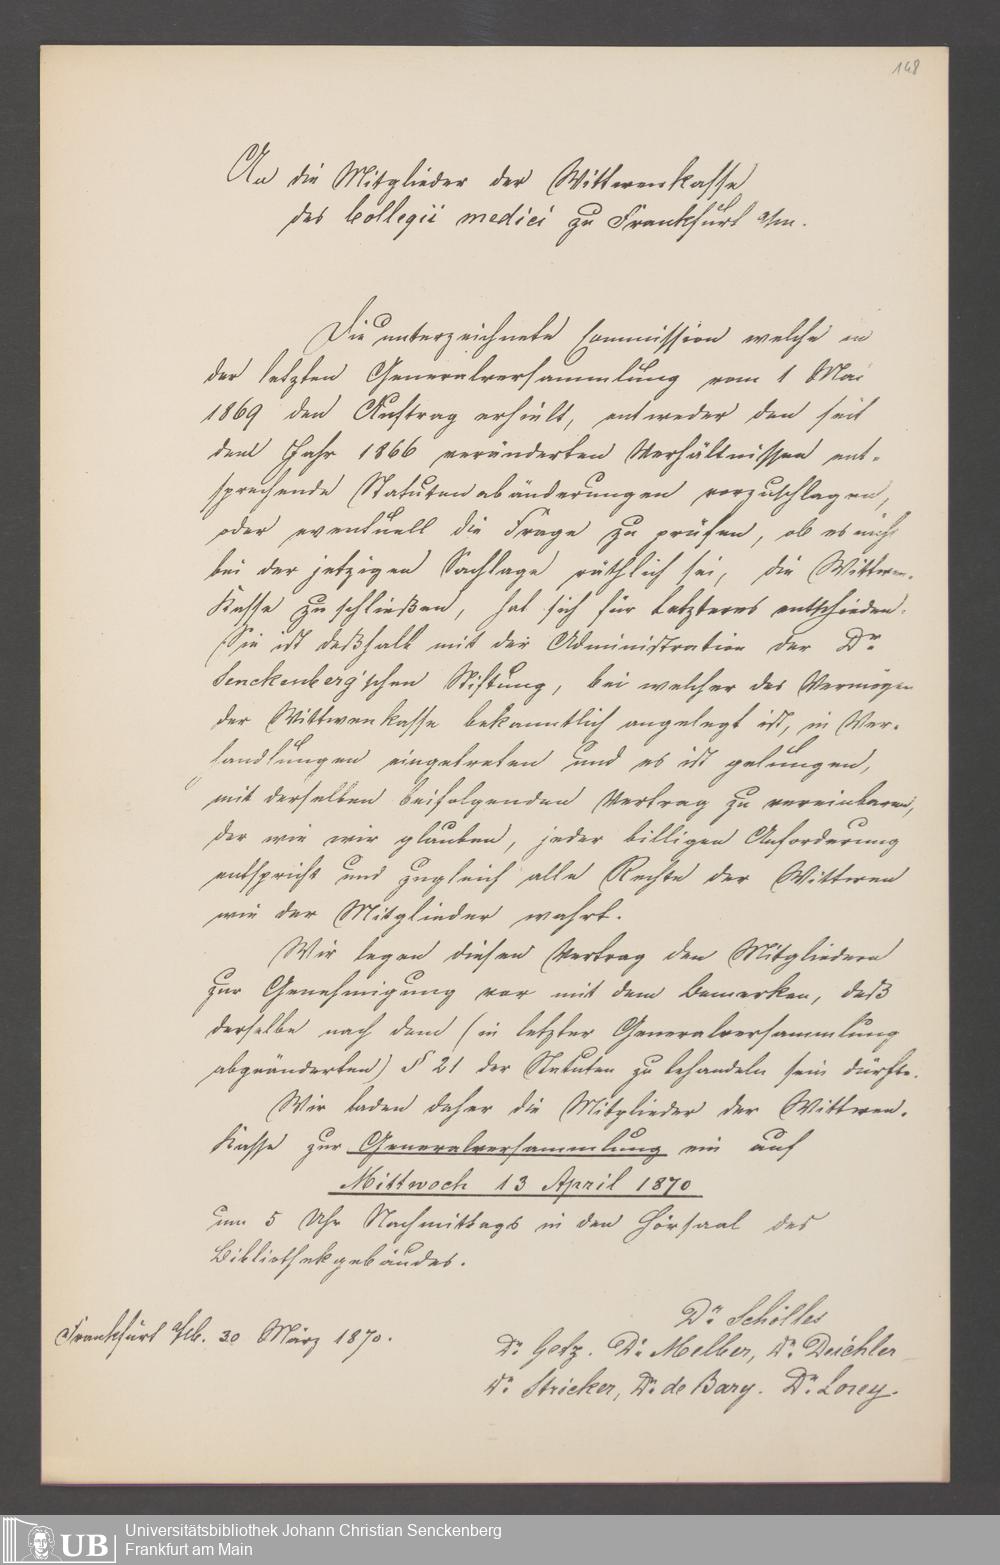 148
An die Mitglieder der Wittwenkasse
des Collegii medici zu Frankfurt a/m.
Die unterzeichnete Commission welche in
der letzten Generalversammlung vom 1 Mai
1869 den Auftrag erhielt, entweder den seit
dem Jahr 1866 veränderten Verhältnissen ent-
sprechende Statutenabänderungen vorzuschlagen,
oder eventuell die Frage zu prüfen, ob es nicht
bei der jetzigen Sachlage räthlich sei, die Wittwen-
Kasse zu schließen, hat sich für Letzteres entschieden.
Sie ist deßhalb mit der Administration der Dr
Senckenberg'schen Stiftung, bei welcher das Vermögen
der Wittwenkasse bekanntlich angelegt ist, in Ver-
handlungen eingetreten und es ist gelungen,
mit derselben beifolgenden Vertrag zu vereinbaren,
der wie wir glauben, jeder billigen Anforderung
entspricht und zugleich alle Rechte der Wittwen
wie der Mitglieder wahrt.
Wir legen diesen Vertrag den Mitgliedern
zur Genehmigung vor mit dem Bemerken, daß
derselbe nach dem (in letzter Generalversammlung
abgeänderten) § 21 der Statuten zu behandeln sein dürfte.
Wir laden daher die Mitglieder der Wittwen-
Kasse zur Generalversammlung ein auf
Mittwoch 13 April 1870
um 5 Uhr Nachmittags in den Hörsaal des
Bibliothekgebäudes.
Frankfurt 30 März 1870.
Dr Schölles
Dr Getz. Dr Melber, Dr Deichler
Dr Stricker, Dr de Bary. Dr Lorey.
UB
Universitätsbibliothek Johann Christian Senckenberg
Frankfurt am Main